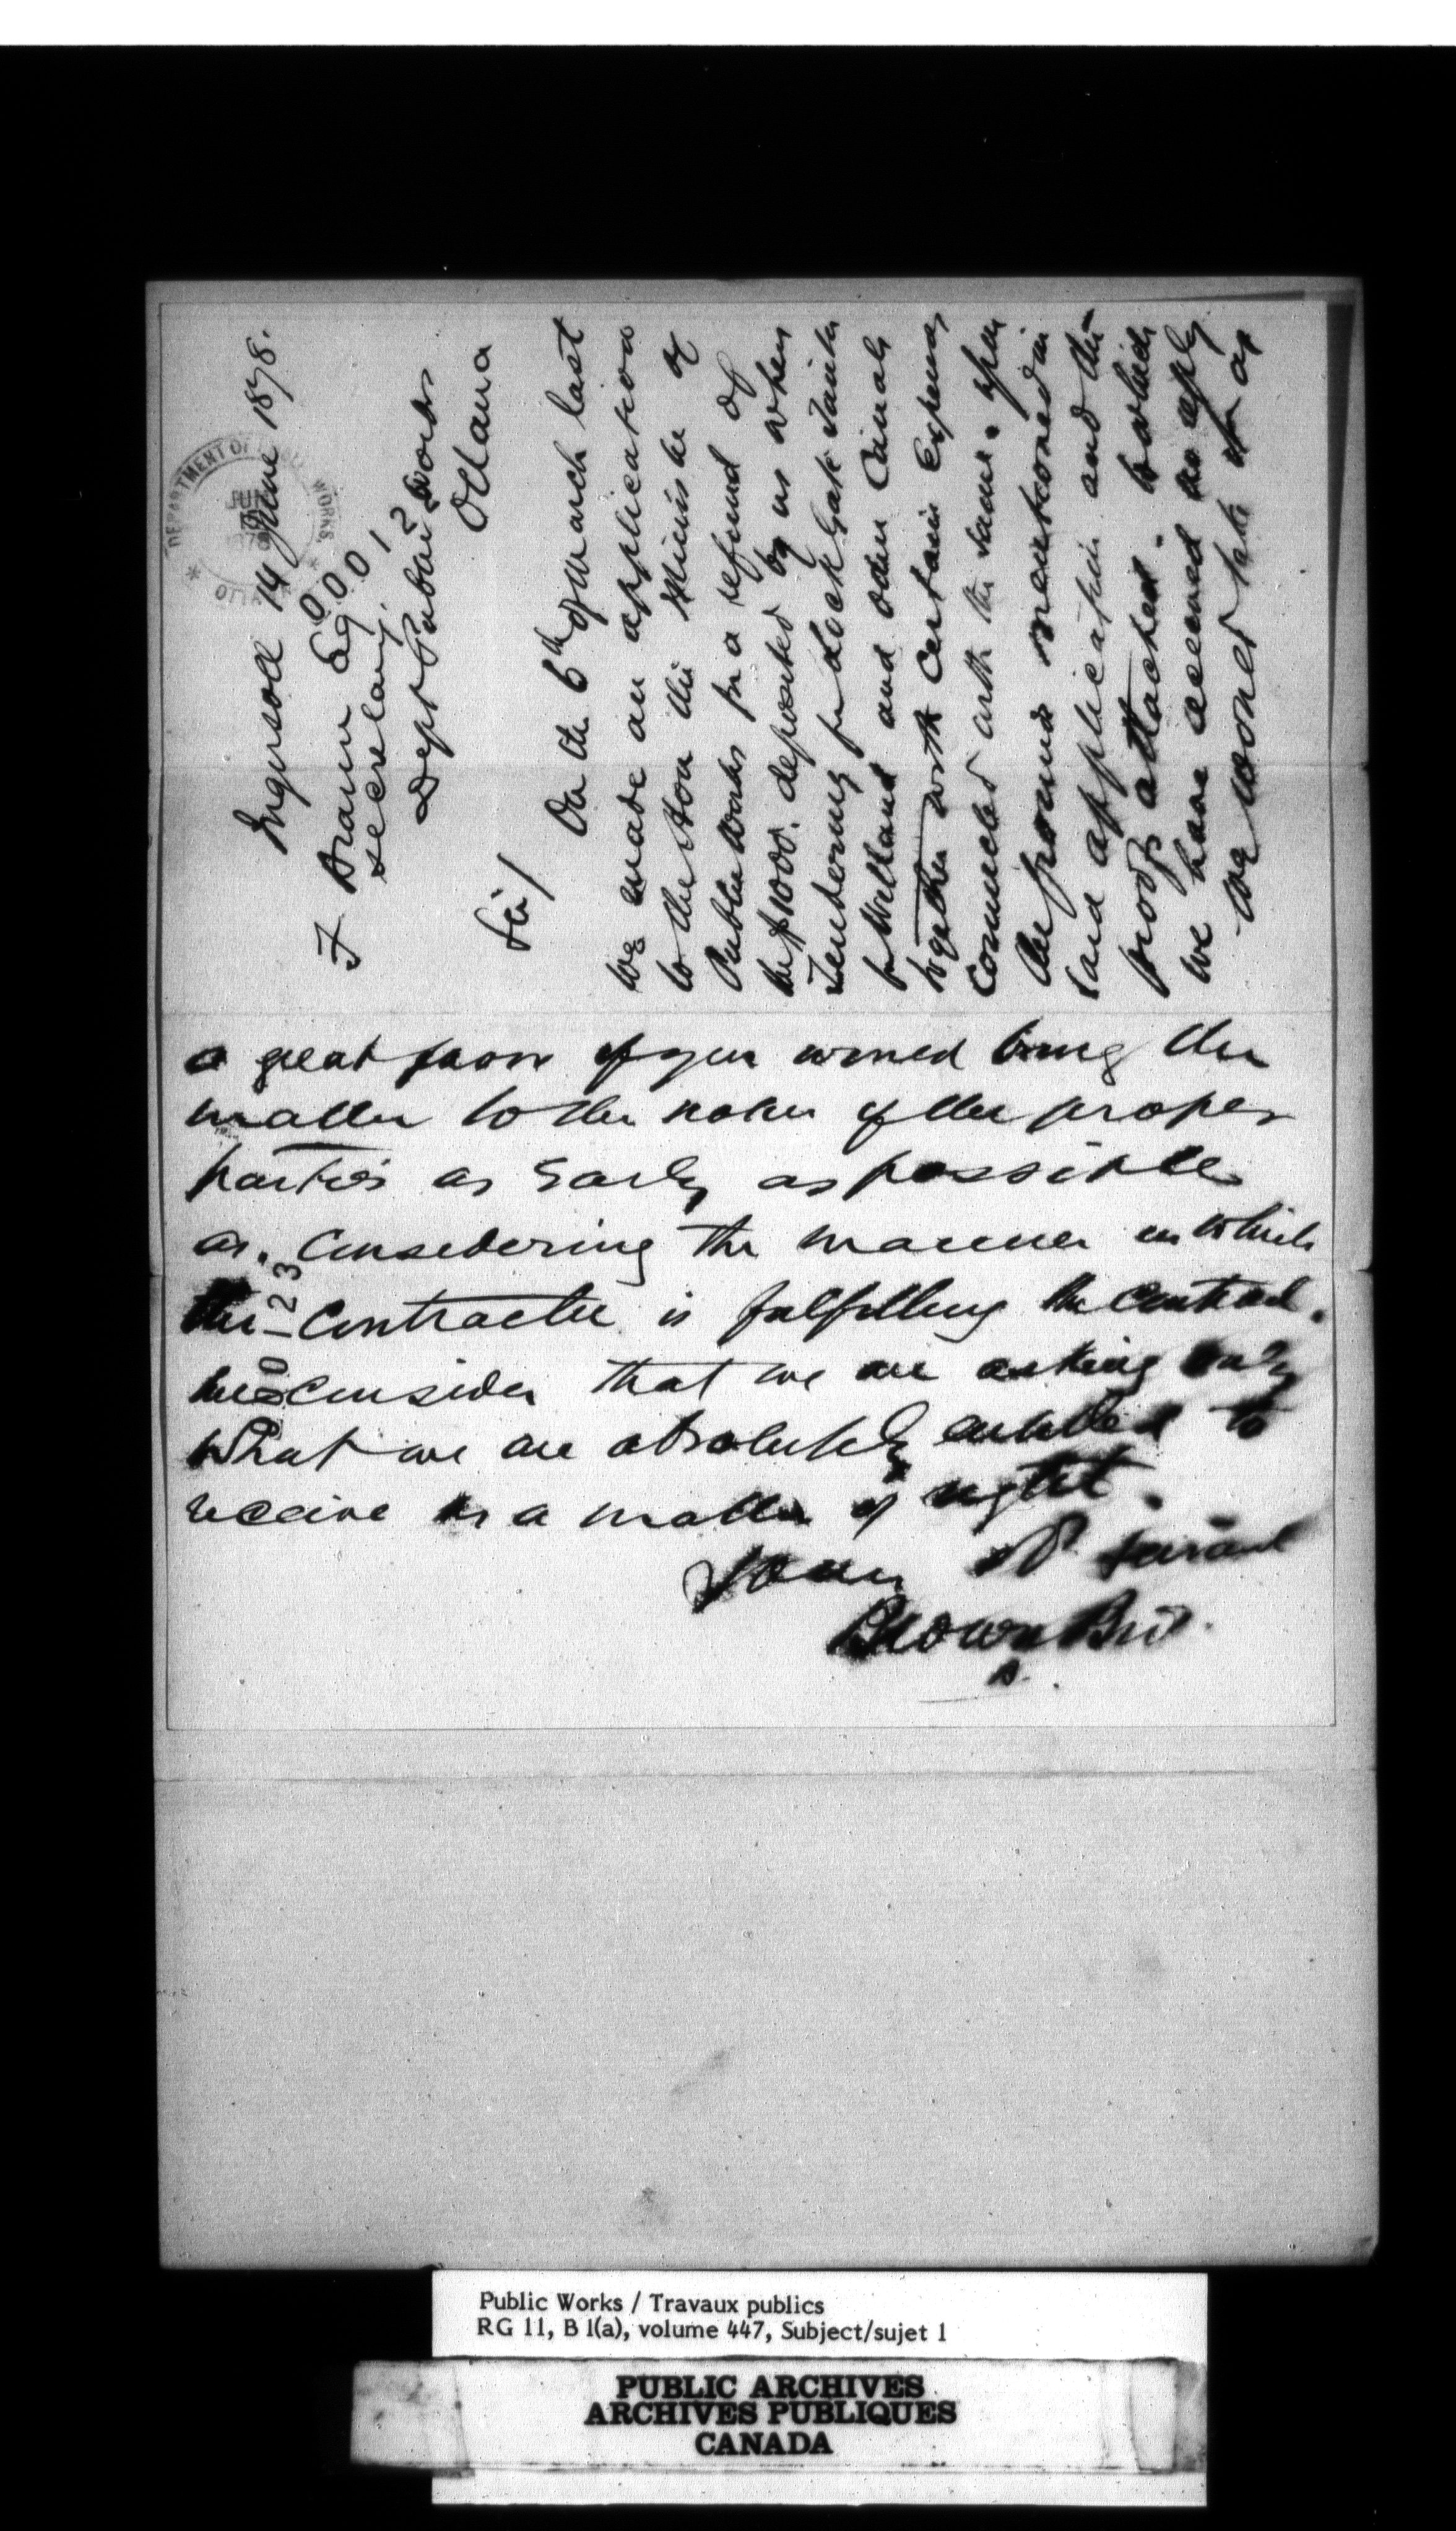 Ingersoll 14 June 1878.
DEPARTMENT OF PUBLIC WORKS
F. Braun Esq
Secretary
Dept Public Works
Ottawa
Sir/
On the 6th of March last
we made an application
to the Hon the Minister of
Public Works for a refund of
the $1000. deposited by us when
Tendering for Lock Gate Timber
for Welland and other Canals
together with certain Expenses
connected with the same. upon
the grounds mentioned in
said application and the
proofs attached. to which
we have received no reply
We would take it as
a great favor if you would bring the
matter to the notice of the proper
parties as Early as possible
as. Considering the manner in which
the Contractor is fulfilling the Contract.
we consider that we are asking only
what we are absolutely entitled to
receive as a matter of right.
Your Ob Servants
Brown Bros.
00012
0023
Public Works / Travaux publics
RG 11, B 1(a), volume 447, Subject/sujet 1
PUBLIC ARCHIVES
ARCHIVES PUBLIQUES
CANADA